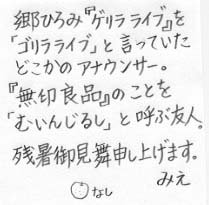 郷ひろみ『ゲリラライブ』を
「ゴリラライブ」と言っていた
どこかのアナウンサー。
『無印良品』のことを
「むいんじるし」と呼ぶ友人。
残暑御見舞申し上げます。
みえ
なし